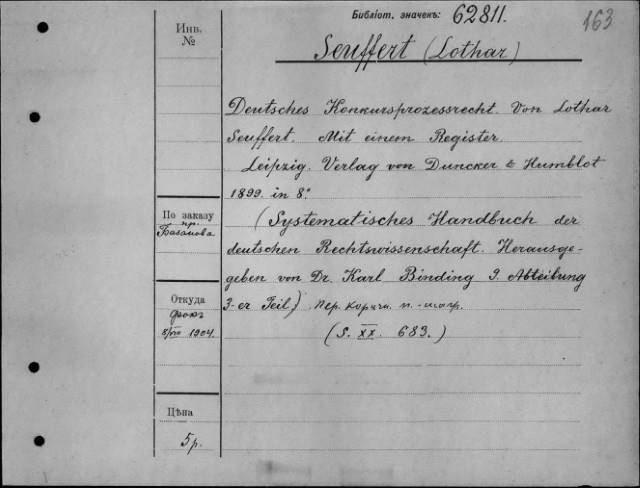 Библіот. значекъ: 62811.
163
Инв.
№
Seuffert (Lothar)
Deutsches Konkursprozessrecht. Von Lothar
Seuffert. Mit einem Register.
Leipzig. Verlag von Duncker & Humblot
1899. in 8°
По заказу
пр.
Базанова
(Systematisches Handbuch der
deutschen Rechtswissenschaft. Herausge-
geben von Dr. Karl Binding 9. Abteibung
3-er Teil) пер. коричн. п.-шагр.
Откуда
8/VIII 1904
(S. XX. 683.)
Цѣна
5 р.